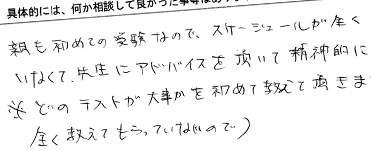 具体的には、何か相談して良かった事等はあり
親も初めての受験なので、スケージュールが全く
いなくて、先生にアドバイスを頂いて精神的に
※どのテストが大事かを初めて教えて頂きま
全く教えてもらっていないので)